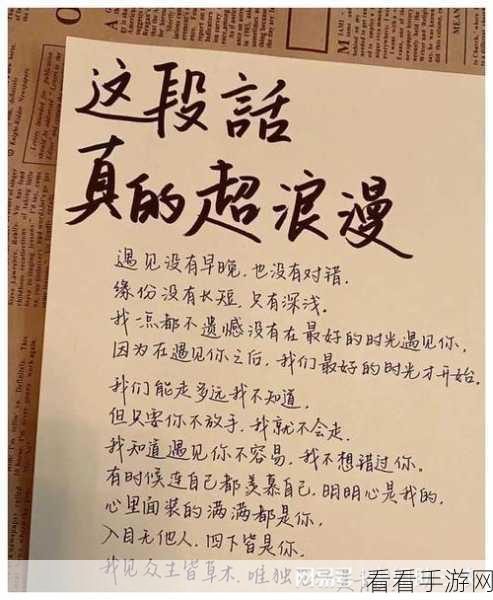 这段話
真的超浪漫
遇见没有早晚，也没有对错，
缘份没有长短，只有深浅。
我一点都不遗憾没有在最好的时光遇见你，
因为在遇见你之后，我们最好的时光才开始。
我们能走多远我不知道，
但只要你不放手，我就不会走，
我知道遇见你不容易，我不想错过你。
有时候连自己都羡慕自己，明明心是我的，
心里面装的满满都是你，
入目无他人，四下皆是你，
我见众生皆草木，唯独
看看手游网